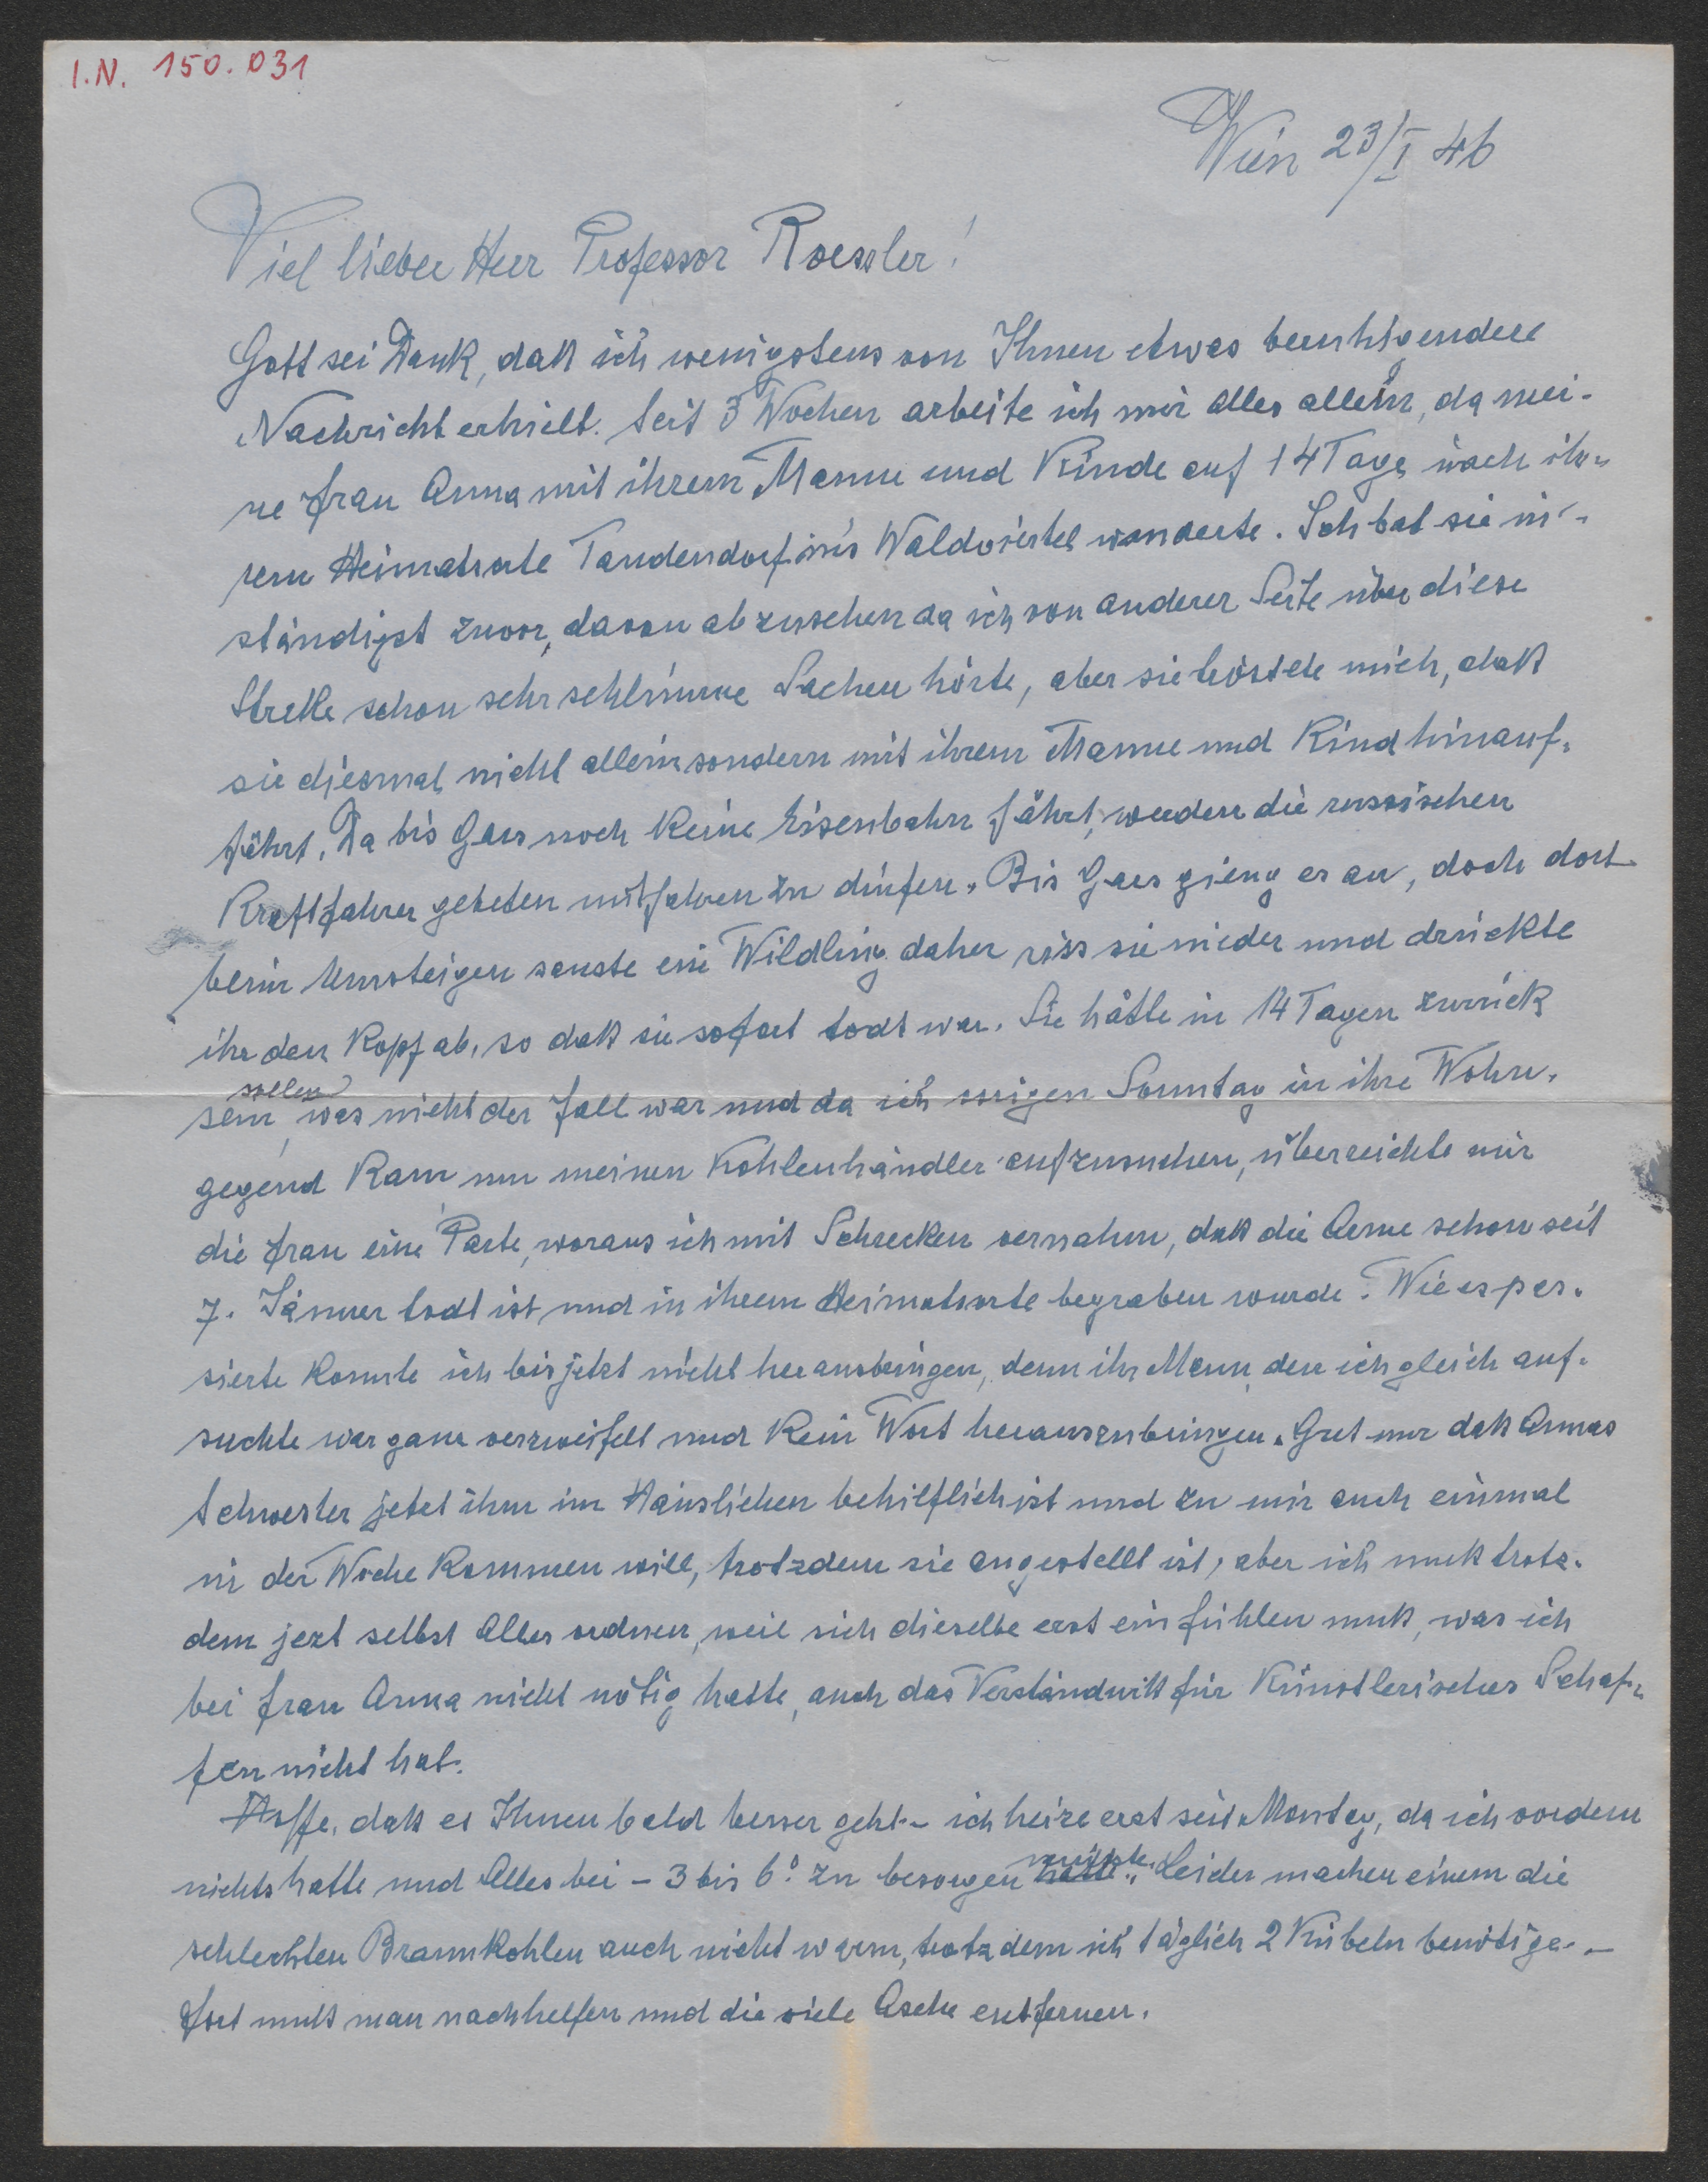 I.N. 150.031
Wien 23/I 46
Viel lieber Herr Professor Roessler!
Gott sei Dank, daß ich wenigstens von Ihnen etwas beruhigendere
Nachricht erhielt. Seit 3 Wochen arbeite ich mir alles allein, da mei-
ne Frau Anna mit ihrem Manne und Kinde auf 14 Tage nach ih-
rem Heimatsorte Tandendorf ins Waldviertel wanderte. Ich bat sie in-
ständigst zuvor, davon abzusehen da ich von anderer Seite über diese
Strecke schon sehr schlimme Sachen hörte, aber sie tröstete mich, daß
sie diesmal nicht allein sondern mit ihrem Manne und Kind hinauf-
fährt. Da bis Gars noch keine Eisenbahn fährt, werden die russischen
Kraftfahrer gebeten mitfahren zu dürfen. Bis Gars gieng es an, doch dort
beim Umsteigen sauste ein Wildling daher riss sie nieder und drückte
ihr den Kopf ab, so daß sie sofort todt war. Sie hätte in 14 Tagen zurück
sein sollen, was nicht der Fall war und da ich vorigen Sonntag in ihre Wohn-
gegend kam, um meinen Kohlenhändler aufzusuchen, überreichte mir
die Frau eine Parte, woraus ich mit Schrecken vernahm, daß die Arme schon seit
7. Jänner todt ist und in ihrem Heimatsorte begraben wurde. Wie es pas-
sierte konnte ich bis jetzt nicht herausbringen, denn ihr Mann, den ich gleich auf-
suchte war ganz verzweifelt und kein Wort herauszubringen. Gut nur daß Annas
Schwester jetzt ihm im Häuslichen behilflich ist und zu mir auch einmal
in der Woche kommen will, trotzdem sie angestellt ist, aber ich muß trotz-
dem jezt selbst Alles ordnen, weil sich dieselbe erst einfühlen muß, was ich
bei Frau Anna nicht nötig hatte, auch das Verständniß für künstlerisches Schaf-
fen nicht hat.
Hoffe, daß es Ihnen bald besser geht – ich heize erst seit Montag, da ich vordem
nichts hatte und Alles bei – 3 bis 6° zu besorgen hatte mußte. Leider machen einem die
schlechten Braunkohlen auch nicht warm, trotzdem ich täglich 2 Kübeln benötige. –
Fort muß man nachhelfen und die viele Asche entfernen.